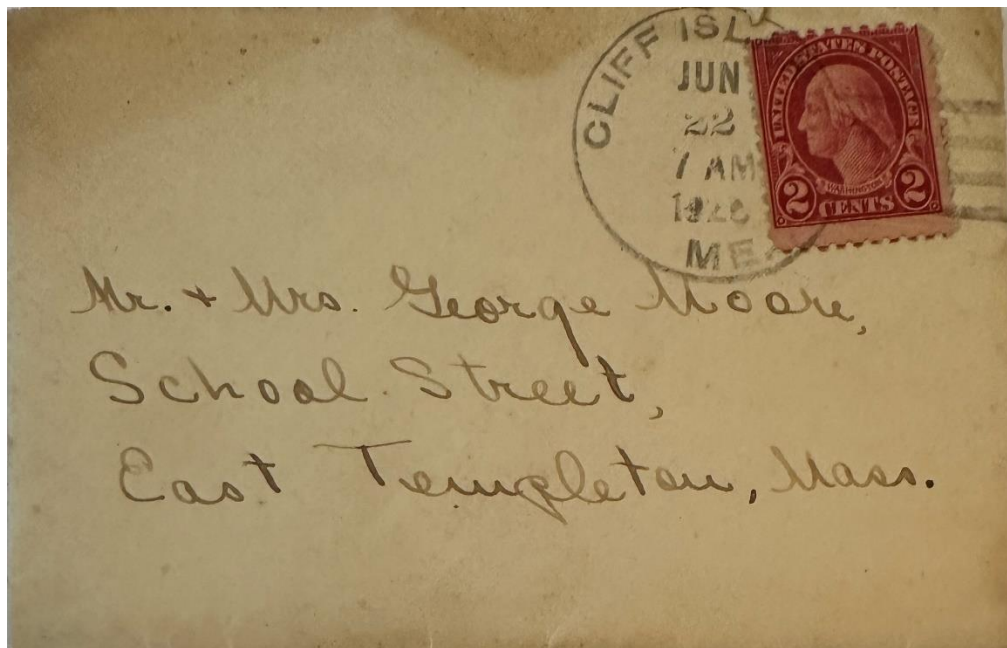 CLIFF ISL
JUN
22
7 AM
ME.
UNITED STATES POSTAGE
WASHINGTON
2 CENTS 2
Mr. + Mrs. George Moore,
School Street,
East Templeton, Mass.